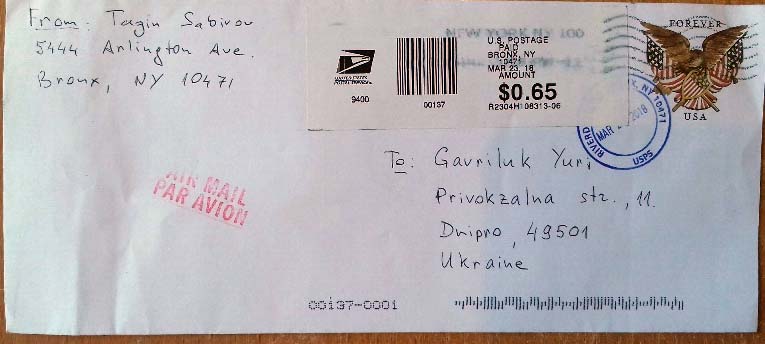 From: Tagin Sabirov
5444 Arlington Ave.
Bronx, NY 10471
UNITED STATES
POSTAL SERVICE
9400
00137
U.S. POSTAGE
PAID
BRONX, NY
10471
MAR 23, 18
AMOUNT
$0.65
R2304H108313-06
NEW YORK NY 100
FOREVER
USA
MAR 2018
NY 10471
USPS
AIR MAIL
PAR AVION
To: Gavriluk Yuri
Privokzalna str., 11.
Dnipro, 49501
Ukraine
00137-0001